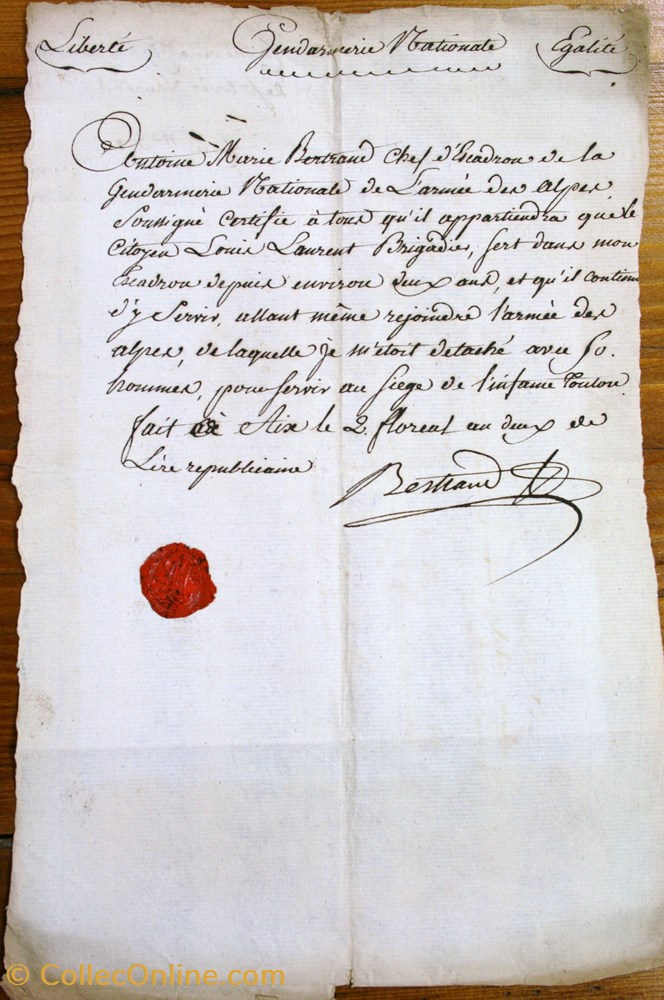 Liberté Gendarmerie Nationale Egalité
Antoine Marie Bertrand Chef d'Escadron de la
Gendarmerie Nationale de L'armée des alpes
Soussigné Certifie à tous qu'il appartiendra que le
Citoyen Louis Laurent Brigadier, sert dans mon
Escadron depuis environ deux ans, et qu'il continue
d'y Servir, allant même rejoindre l'armée des
alpes, de laquelle je m'étoit detaché avec 50.
hommes, pour servir au Siege de l'infame Toulon.
fait à Aix le 2. floreal an deux de
L'ére republicaine
Bertrand
© CollecOnline.com